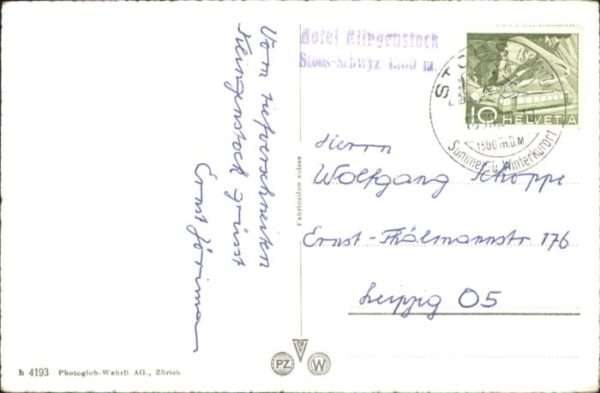 Hotel Klingenstock
Stoos-Schwyz 1300 m.
STO
10 HELVETIA
1300 m.ü.M
Sommer u. Winterkurort
Vom tiefverschneiten
Klingenstock grüsst
Ernst
Herrn
Wolfgang Schoppe
Ernst-Thälmannstr 176
Leipzig O5
PZ
W
h 4193 Photoglob-Wehrli AG., Zürich